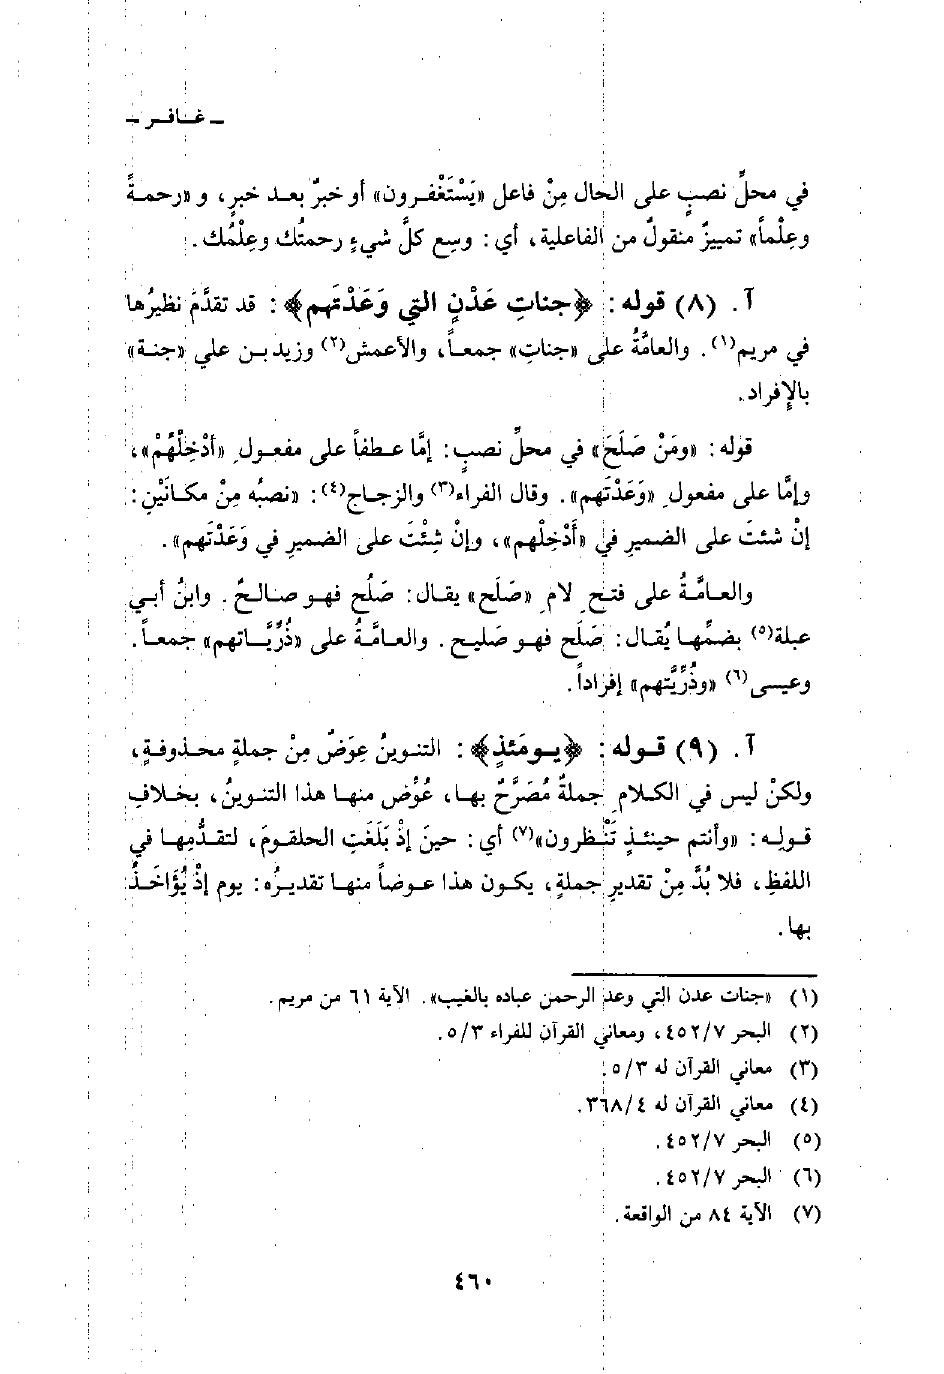 ـ غـافـر ـ
في محلِّ نصبٍ على الحال مِنْ فاعل «يَسْتَغْفرون» أو خبرٌ بعد خبرٍ، و «رحمةً
وعِلْماً» تمييزٌ منقولٌ من الفاعلية، أي: وسِع كلَّ شيءٍ رحمتُك وعِلْمُك.
آ. (٨) قوله: ﴿جناتِ عَدْنٍ التي وَعَدْتَهم﴾: قد تقدَّمَ نظيرُها
في مريم(١). والعامَّةُ على «جناتِ» جمعاً، والأعمش(٢) وزيد بن علي «جنة»
بالإِفراد.
قوله: «ومَنْ صَلَحَ» في محلِّ نصبٍ: إمَّا عطفاً على مفعولِ «أَدْخِلْهُمْ»،
وإمَّا على مفعولِ «وَعَدْتَهم». وقال الفراء(٣) والزجاج(٤): «نصبُه مِنْ مكانَيْنِ:
إنْ شئتَ على الضميرِ في «أَدْخِلْهم»، وإنْ شِئْتَ على الضميرِ في وَعَدْتَهم».
والعامَّةُ على فتحِ لامِ «صَلَح» يقال: صَلُح فهو صالحٌ. وابنُ أبي
عبلة(٥) بضمِّها يُقال: صَلَح فهو صَليح. والعامَّةُ على «ذُرِّيَّاتهم» جمعاً.
وعيسى(٦) «وذُرِّيَّتهم» إفراداً.
آ. (٩) قوله: ﴿يومَئذٍ﴾: التنوينُ عِوَضٌ مِنْ جملةٍ محذوفةٍ،
ولكنْ ليس في الكلامِ جملةٌ مُصَرَّحٌ بها، عُوِّض منها هذا التنوينُ، بخلافِ
قولِه: «وأنتم حينئذٍ تَنْظرون»(٧) أي: حينَ إذْ بَلَغَتِ الحلقومَ، لتقدُّمِها في
اللفظِ، فلا بُدَّ مِنْ تقديرِ جملةٍ، يكون هذا عوضاً منها تقديرُه: يوم إذْ يُؤَاخَذُ
بها.
(١) «جنات عدن التي وعد الرحمن عباده بالغيب». الآية ٦١ من مريم.
(٢) البحر ٤٥٢/٧، ومعاني القرآن للفراء ٥/٣.
(٣) معاني القرآن له ٥/٣.
(٤) معاني القرآن له ٣٦٨/٤.
(٥) البحر ٤٥٢/٧.
(٦) البحر ٤٥٢/٧.
(٧) الآية ٨٤ من الواقعة.
٤٦٠